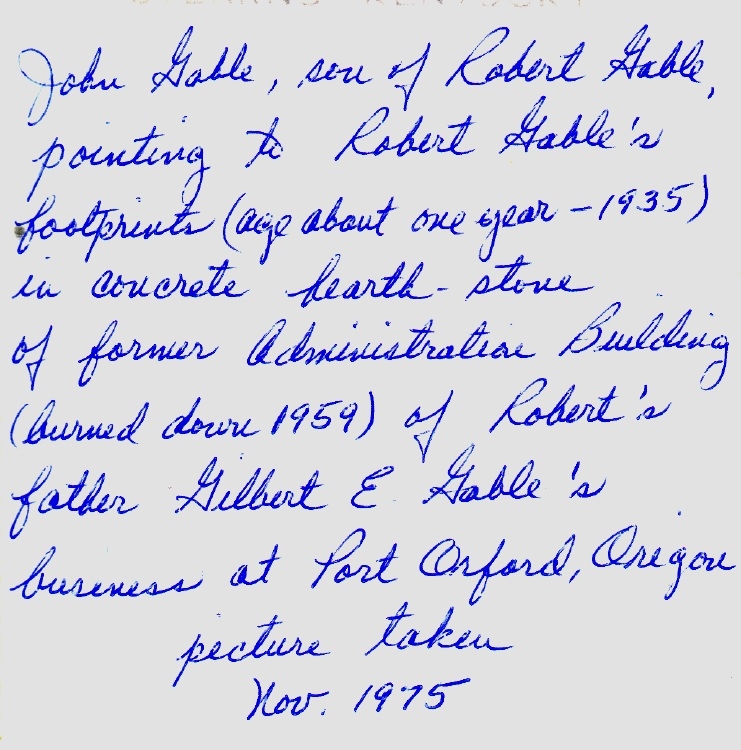 John Gable, son of Robert Gable,
pointing to Robert Gable's
footprints (age about one year - 1935)
in concrete hearth-stone
of former Administration Building
(burned down 1959) of Robert's
father Gilbert E. Gable's
business at Port Orford, Oregon
picture taken
Nov. 1975